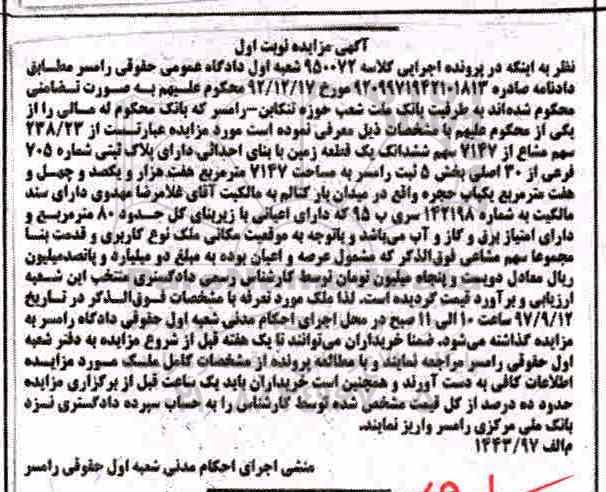 آگهی مزایده نوبت اول
نظر به اینکه در پرونده اجرایی کلاسه ۹۵۰۰۷۲ شعبه اول دادگاه عمومی حقوقی رامسر مطابق
دادنامه صادره ۹۲۰۹۹۷۱۹۴۲۱۰۱۸۱۳ مورخ ۹۲/۱۲/۱۷ محکوم علیهم به صورت تضامنی
محکوم شده‌اند با طرفیت بانک ملت شعب حوزه تنکابن-رامسر که بانک محکوم له مالی را از
یکی از محکوم علیهم با مشخصات ذیل معرفی نموده است مورد مزایده عبارتست از ۲۳۸/۲۳
سهم مشاع از ۷۱۴۷ سهم ششدانگ یک قطعه زمین با بنای احداثی دارای پلاک ثبتی شماره ۷۰۵
فرعی از ۳۰ اصلی بخش ۵ ثبت رامسر به مساحت ۷۱۴۷ مترمربع هفت هزار و یکصد و چهل و
هفت مترمربع یکباب حجره واقع در میدان بار کتالم به مالکیت آقای غلامرضا مهدوی دارای سند
مالکیت به شماره ۱۴۲۱۹۸ سری ب ۹۵ که دارای اعیانی با زیربنای کل حدود ۸۰ مترمربع و
دارای امتیاز برق و گاز و آب می‌باشد و باتوجه به موقعیت مکانی ملک نوع کاربری و قدمت بنا
مجموعا سهم مشاعی فوق‌الذکر که مشمول عرصه و اعیان بوده به مبلغ دو میلیارد و پانصدمیلیون
ریال معادل دویست و پنجاه میلیون تومان توسط کارشناس رسمی دادگستری منتخب این شعبه
ارزیابی و برآورد قیمت گردیده است. لذا ملک مورد تعرفه با مشخصات فوق‌الذکر در تاریخ
۹۷/۹/۱۲ ساعت ۱۰ الی ۱۱ صبح در محل اجرای احکام مدنی شعبه اول حقوقی دادگاه رامسر به
مزایده گذاشته می‌شود. ضمنا خریداران می‌توانند تا یک هفته قبل از شروع مزایده به دفتر شعبه
اول حقوقی رامسر مراجعه نمایند و با مطالعه پرونده از مشخصات کامل ملک مورد مزایده
اطلاعات کافی به دست آورند و همچنین است خریداران باید یک ساعت قبل از برگزاری مزایده
حدود ده درصد از کل قیمت مشخص شده توسط کارشناس را به حساب سپرده دادگستری نزد
بانک ملی مرکزی رامسر واریز نمایند.
م‌الف ۱۴۴۳/۹۷
منشی اجرای احکام مدنی شعبه اول حقوقی رامسر